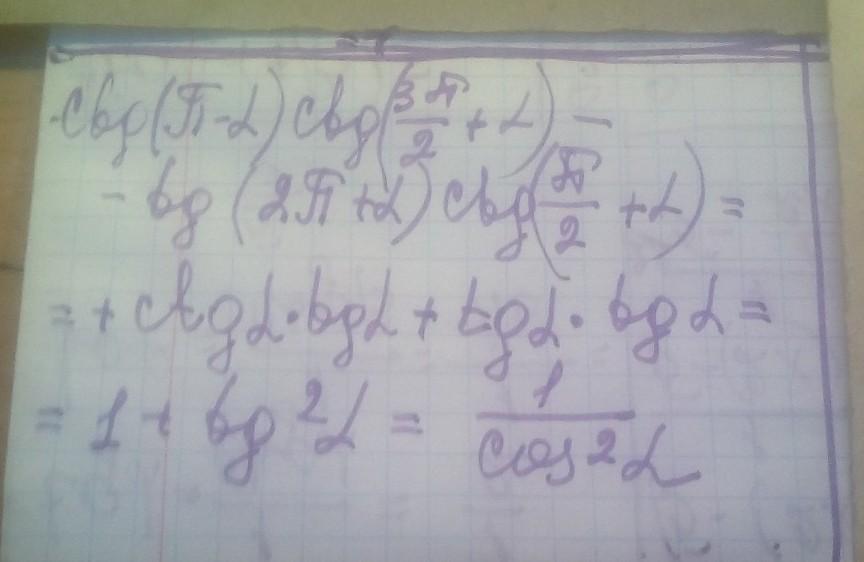 ctg(π-α) ctg(3π/2 + α) -
- tg (2π+α) ctg(π/2 + α) =
= + ctgα · tgα + tgα · tgα =
= 1 + tg²α = 1/cos²α